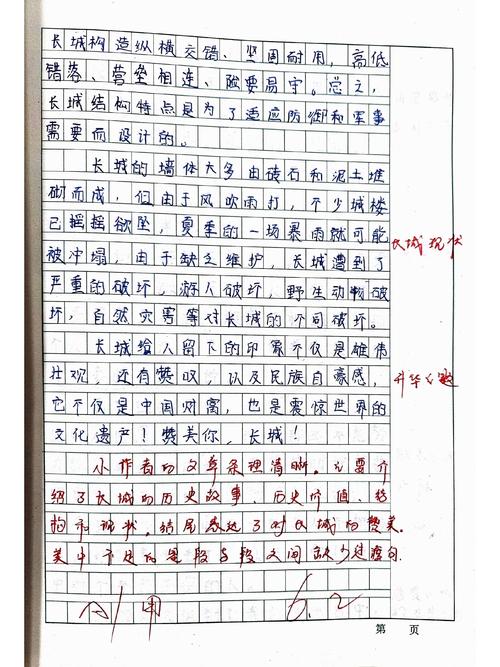 长城构造纵横交错、坚固耐用，高低
错落、营垒相连、险要易守。总之，
长城结构特点是为了适应防御和军事
需要而设计的。
长城的墙体大多由砖石和泥土堆
砌而成，但由于风吹雨打，不少城楼
已摇摇欲坠，夏季的一场暴雨就可能
被冲塌，由于缺乏维护，长城遭到了
长城现状
严重的破坏，游人破坏，野生动物破
坏，自然灾害等对长城的不同破坏。
长城给人留下的印象不仅是雄伟
壮观，还有赞叹，以及民族自豪感，
升华主题
它不仅是中国财富，也是震惊世界的
文化遗产！赞美你，长城！
小作者的文章条理清晰。主要介
绍了长城的历史故事、历史价值、结
构和现状。结尾表达了对长城的赞美。
美中不足的是段与段之间缺少过渡句.
6.2
第 页